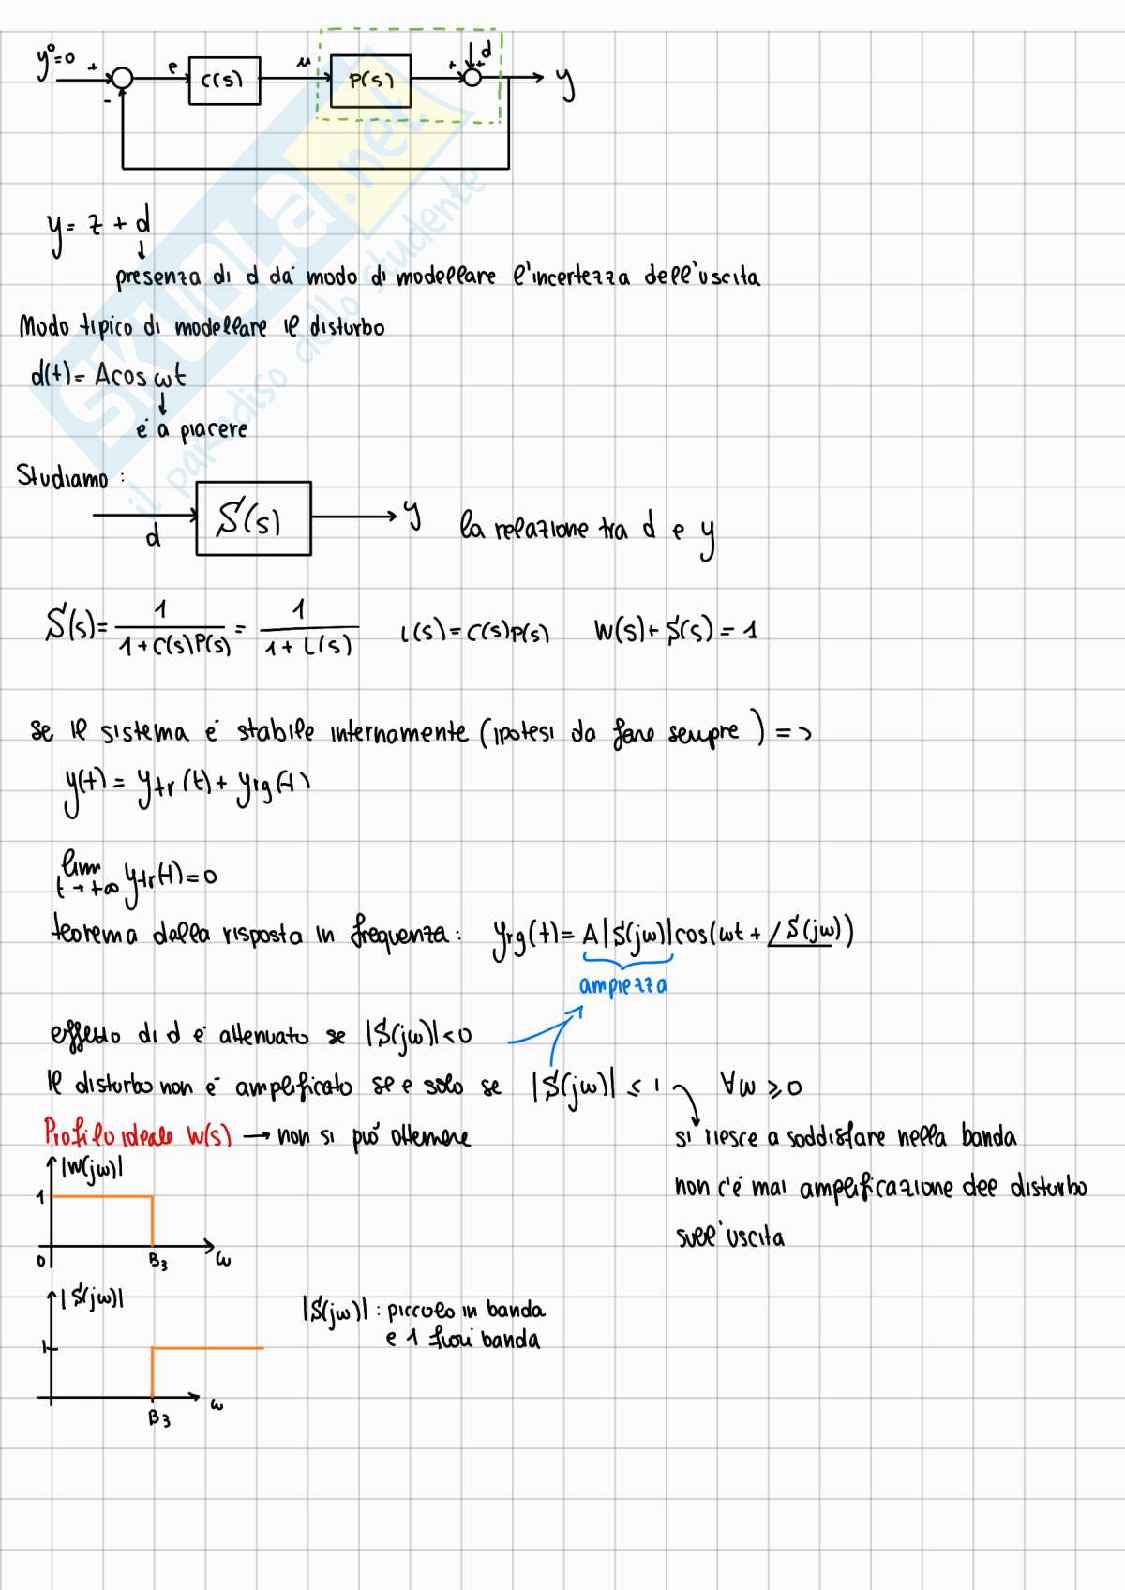 y°=0 + e C(s) u P(s) + d + y
-
y = z + d
presenza di d da' modo di modellare l'incertezza dell'uscita
Modo tipico di modellare il disturbo
d(t)= Acos ωt
è a piacere
Studiamo :
d S(s) y la relazione tra d e y
S(s)= 1/(1+C(s)P(s)) = 1/(1+L(s)) L(s)=C(s)P(s) W(s)+S(s)=1
se il sistema è stabile internamente (ipotesi da fare sempre) =>
y(t)= ytr(t)+ yrg(t)
lim t→+∞ ytr(t)=0
teorema della risposta in frequenza: yrg(t)= A|S(jω)|cos(ωt + ∠S(jω))
ampiezza
effetto di d è attenuato se |S(jω)|<0
il disturbo non è amplificato se e solo se |S(jω)| ≤ 1 ∀ω ≥ 0
Profilo ideale W(s) → non si può ottenere
si riesce a soddisfare nella banda
non c'è mai amplificazione del disturbo
sull'uscita
|W(jω)|
1
0 B3 ω
|S(jω)|
1
B3 ω
|S(jω)| : piccolo in banda
e 1 fuori banda
SKUOLA.net
il paradiso dello studente